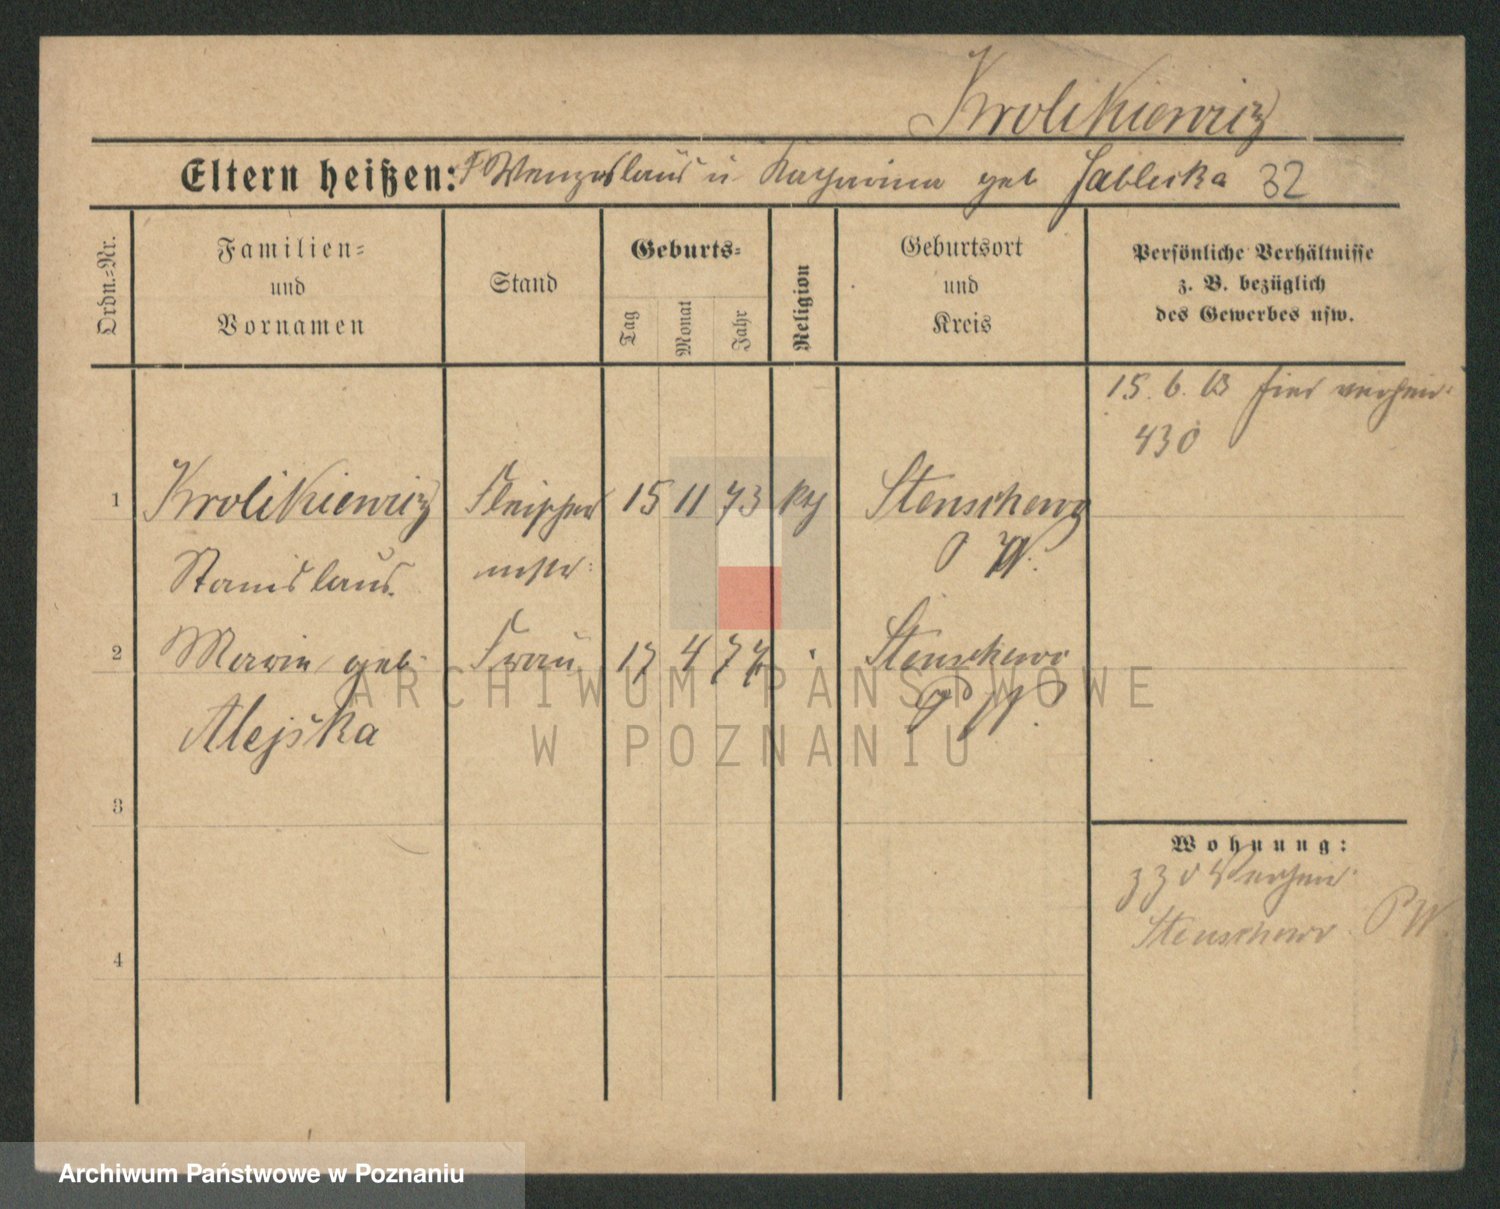 Krolikiewicz
Eltern heißen: Wenzeslaus u Katharina geb Jableska 32
Ordn.-Nr.
Familien-
und
Vornamen
Stand
Geburts-
Tag
Monat
Jahr
Religion
Geburtsort
und
Kreis
Persönliche Verhältnisse
z. B. bezüglich
des Gewerbes usw.
15. 6. 13 hier verheir.
430
1 Krolikiewicz Fleischer 15 11 73 kth Stenschewo
Stanislaus meister P W.
2 Maria geb. Frau 17 4 77 Stenschewo
Alejska P W.
3
Wohnung:
Stenschewo P W
4
ARCHIWUM PAŃSTWOWE
W POZNANIU
Archiwum Państwowe w Poznaniu